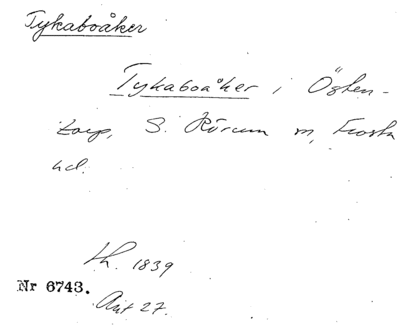 Tykaboåker
Tykaboåker i Östen-
torp, S. Rörum sn, Frosta
hd.
Lh. 1839
Nr 6743.
Avt 27.